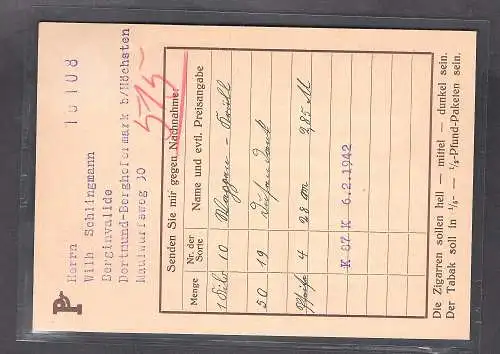 P
Herrn 10108
Wilh Schlingmann
Berginvalide
Dortmund-Berghofermark b/Höchsten
Maulwurfsweg 30
515-
Senden Sie mir gegen Nachnahme:
Menge Nr. der Sorte Name und evtl. Preisangabe
1 Kilo 10 Wappen - Krüll
50 19
4 28 cm 2,85 M
K 87 K 6.2.1942
Die Zigarren sollen hell — mittel — dunkel sein.
Der Tabak soll in ¹/₈- — ¹/₄-Pfund-Paketen sein.